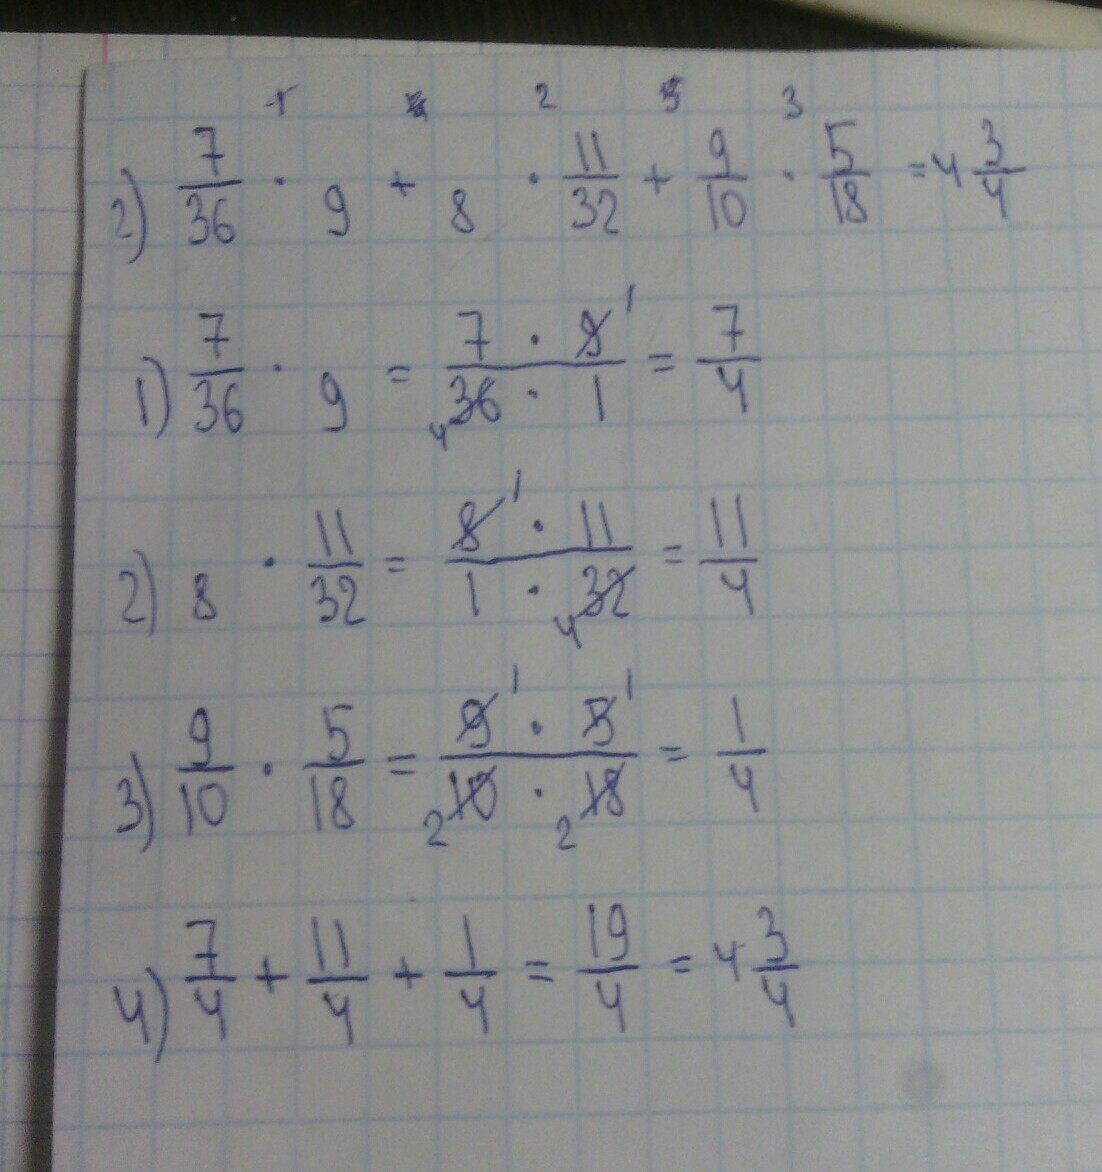 1 4 2 5 3
2) 7/36 · 9 + 8 · 11/32 + 9/10 · 5/18 = 4 3/4
1) 7/36 · 9 = 7 · 9 1 / 4 36 · 1 = 7/4
2) 8 · 11/32 = 8 1 · 11 / 1 · 4 32 = 11/4
3) 9/10 · 5/18 = 9 1 · 5 1 / 2 10 · 2 18 = 1/4
4) 7/4 + 11/4 + 1/4 = 19/4 = 4 3/4